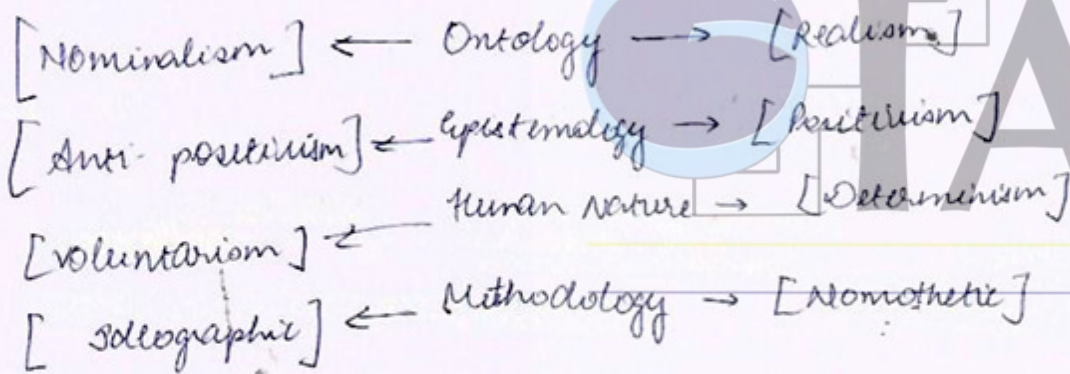 [Nominalism] ← Ontology → [Realism]
[Anti-positivism] ← Epistemology → [Positivism]
[Voluntarism] ← Human Nature → [Determinism]
[Ideographic] ← Methodology → [Nomothetic]
TA